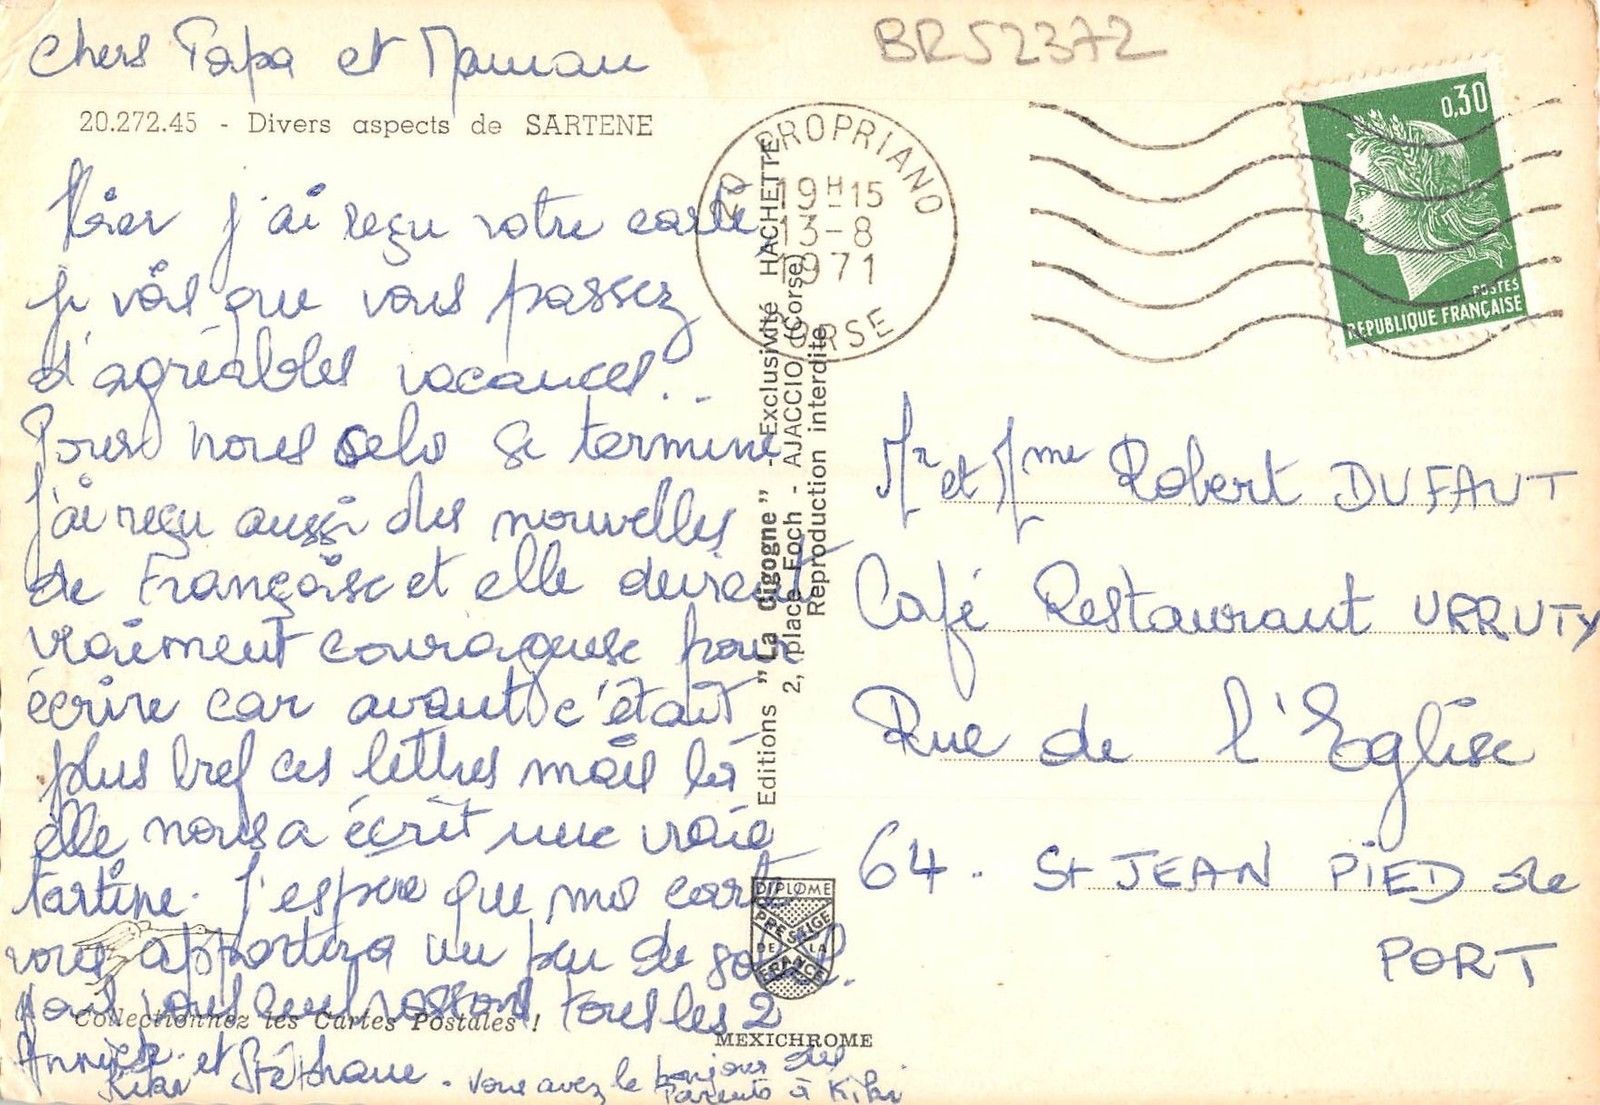 Chers Papa et Maman
20.272.45 - Divers aspects de SARTENE
Hier j'ai reçu votre carte
je vois que vous passez
d'agréables vacances...
Pour nous cela se termine
J'ai reçu aussi des nouvelles
de Françoise et elle devient
vraiment courageuse pour
écrire car avant c'était
plus bref ces lettres mais là
elle nous a écrit une vraie
tartine. J'espère que ma carte
vous apportera un peu de soleil.
Nous vous embrassons tous les 2
Collectionnez les Cartes Postales !
Annick et Stéphane.
Kiki
Vous avez le bonjour des
Parents à Kiki
Editions "La Cigogne" - Exclusivité HACHETTE
2, place Foch - AJACCIO (Corse)
Reproduction interdite
DIPLOME
PRESTIGE
DE LA
FRANCE
MEXICHROME
BR52372
20 PROPRIANO
19H15
13-8
1971
CORSE
0,30
POSTES
REPUBLIQUE FRANÇAISE
Mr et Mme Robert DUFAUT
Café Restaurant URRUTY
Rue de l'Eglise
64. St JEAN PIED de
PORT